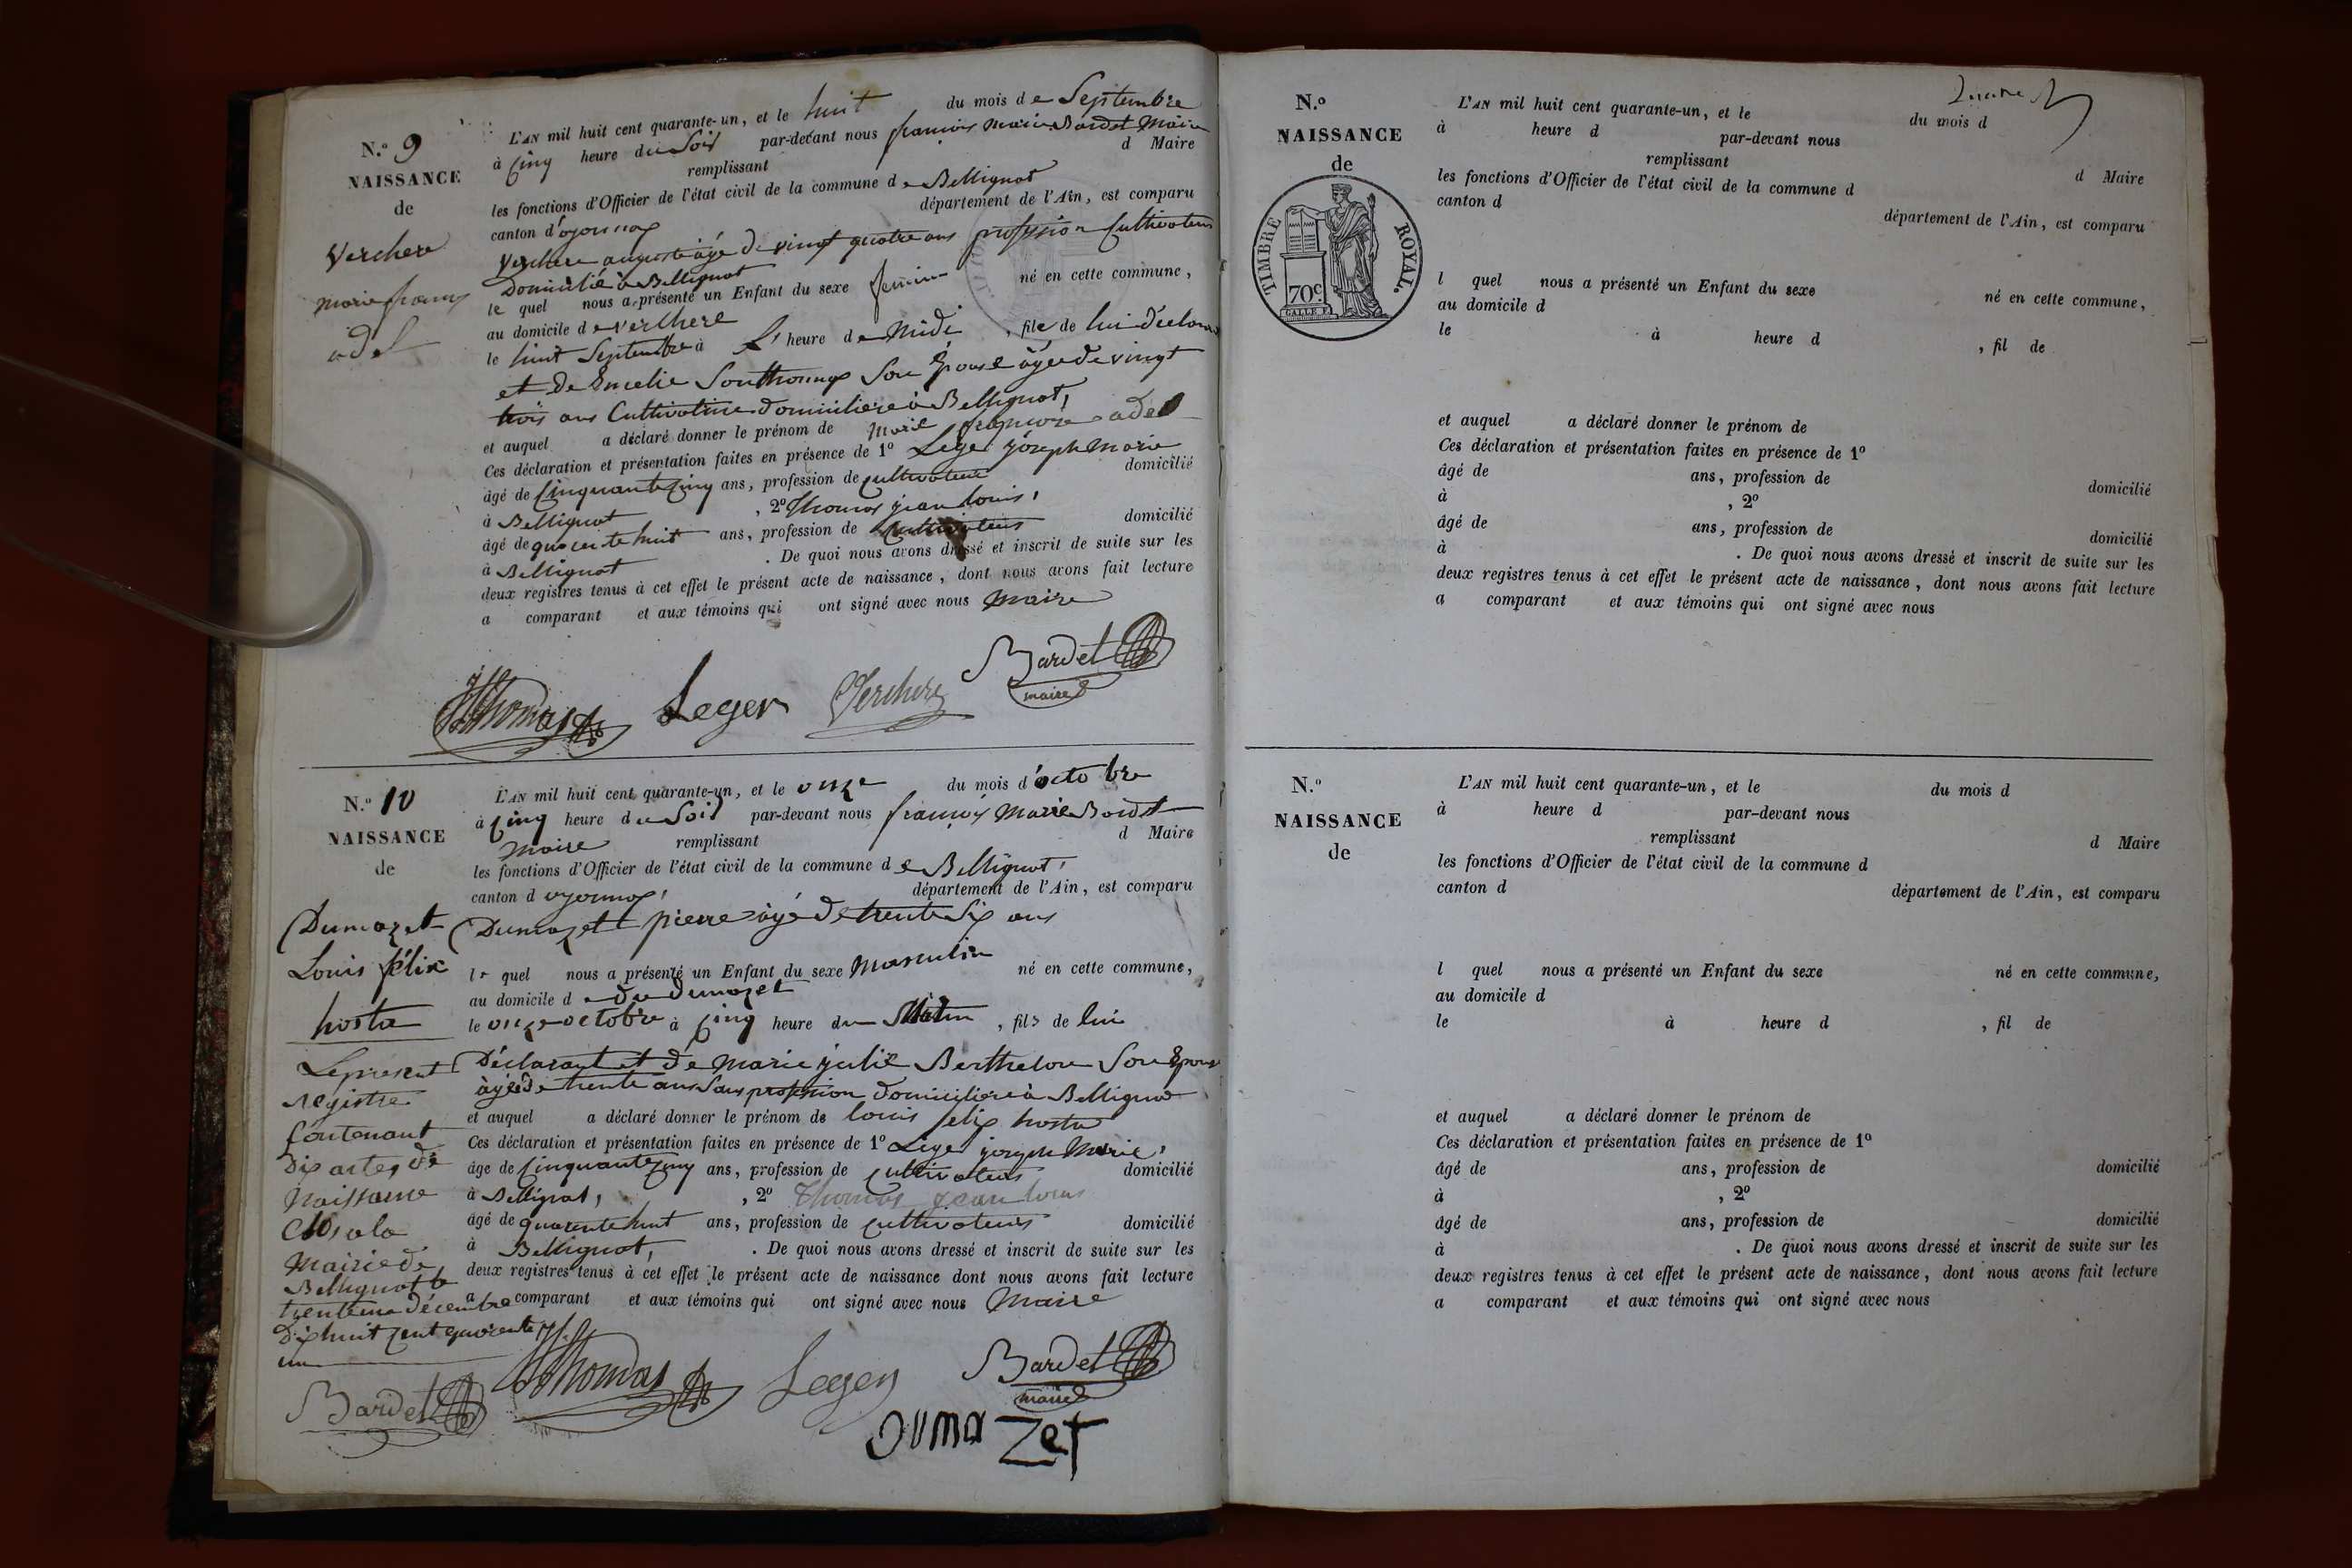 N.o 9
NAISSANCE
de
Verchere
marie franç
adel
L'AN mil huit cent quarante-un, et le huit du mois de Septembre
à cinq heure du Soir par-devant nous françois Marie Bardet Maire
remplissant d Maire
les fonctions d'Officier de l'état civil de la commune de Bellignat
canton d'oyonnax département de l'Ain, est comparu
Verchere auguste âgé de vingt quatre ans profession Cultivateur
Domicilié à Bellignat
le quel nous a présenté un Enfant du sexe feminin né en cette commune,
au domicile de verchere
le huit Septembre à l' heure de Midi , file de lui déclarant
et de Emelie Southonnax Son Epouse âgée de vingt
trois ans Cultivatrice domiciliere à Bellignat,
et auquel a déclaré donner le prénom de Marie françoise adel
Ces déclaration et présentation faites en présence de 1o Leger joseph Marie
âgé de Cinquante cinq ans, profession de cultivateur domicilié
à Bellignat , 2o Thomas jean louis,
âgé de quarente huit ans, profession de Cultivateur domicilié
à Bellignat . De quoi nous avons dressé et inscrit de suite sur les
deux registres tenus à cet effet le présent acte de naissance, dont nous avons fait lecture
a comparant et aux témoins qui ont signé avec nous Maire
JL Thomas Leger Verchere Bardet
maire
N.o 10
NAISSANCE
de
Dumazet
Louis félix
hosta
Le present
registre
Contenant
Dix actes de
Naissance
Clos a la
Mairie de
Bellignat le
trente un décembre
Dix huit cent quarente
un
Bardet
L'AN mil huit cent quarante-un, et le onze du mois d'octobre
à cinq heure du Soir par-devant nous françois Marie Bardet
Maire remplissant d Maire
les fonctions d'Officier de l'état civil de la commune de Bellignat,
canton d oyonnax, département de l'Ain, est comparu
Dumazet pierre âgé de trente Six ans
le quel nous a présenté un Enfant du sexe Masculin né en cette commune,
au domicile d e du dumazet
le onze octobre à cinq heure du Matin , fils de lui
Déclarant et de Marie julie Berthelon Son Epouse
âgée de trente ans Sans profession domiciliere à Bellignat
et auquel a déclaré donner le prénom de louis felix hosta
Ces déclaration et présentation faites en présence de 1o Leger joseph Marie,
âge de Cinquante cinq ans, profession de cultivateur domicilié
à Bellignat, , 2o Thomas jean louis
âgé de quarente huit ans, profession de cultivateurs domicilié
à Bellignat, . De quoi nous avons dressé et inscrit de suite sur les
deux registres tenus à cet effet le présent acte de naissance dont nous avons fait lecture
a comparant et aux témoins qui ont signé avec nous Maire
JL Thomas Leger Bardet
maire
DUMAZET
N.o
NAISSANCE
de
TIMBRE ROYAL.
70c
L'AN mil huit cent quarante-un, et le du mois d
à heure d par-devant nous
remplissant d Maire
les fonctions d'Officier de l'état civil de la commune d
canton d département de l'Ain, est comparu
l quel nous a présenté un Enfant du sexe né en cette commune,
au domicile d
le à heure d , fil de
et auquel a déclaré donner le prénom de
Ces déclaration et présentation faites en présence de 1o
âgé de ans, profession de domicilié
à , 2o
âgé de ans, profession de domicilié
à . De quoi nous avons dressé et inscrit de suite sur les
deux registres tenus à cet effet le présent acte de naissance, dont nous avons fait lecture
a comparant et aux témoins qui ont signé avec nous
N.o
NAISSANCE
de
L'AN mil huit cent quarante-un, et le du mois d
à heure d par-devant nous
remplissant d Maire
les fonctions d'Officier de l'état civil de la commune d
canton d département de l'Ain, est comparu
l quel nous a présenté un Enfant du sexe né en cette commune,
au domicile d
le à heure d , fil de
et auquel a déclaré donner le prénom de
Ces déclaration et présentation faites en présence de 1o
âgé de ans, profession de domicilié
à , 2o
âgé de ans, profession de domicilié
à . De quoi nous avons dressé et inscrit de suite sur les
deux registres tenus à cet effet le présent acte de naissance, dont nous avons fait lecture
a comparant et aux témoins qui ont signé avec nous